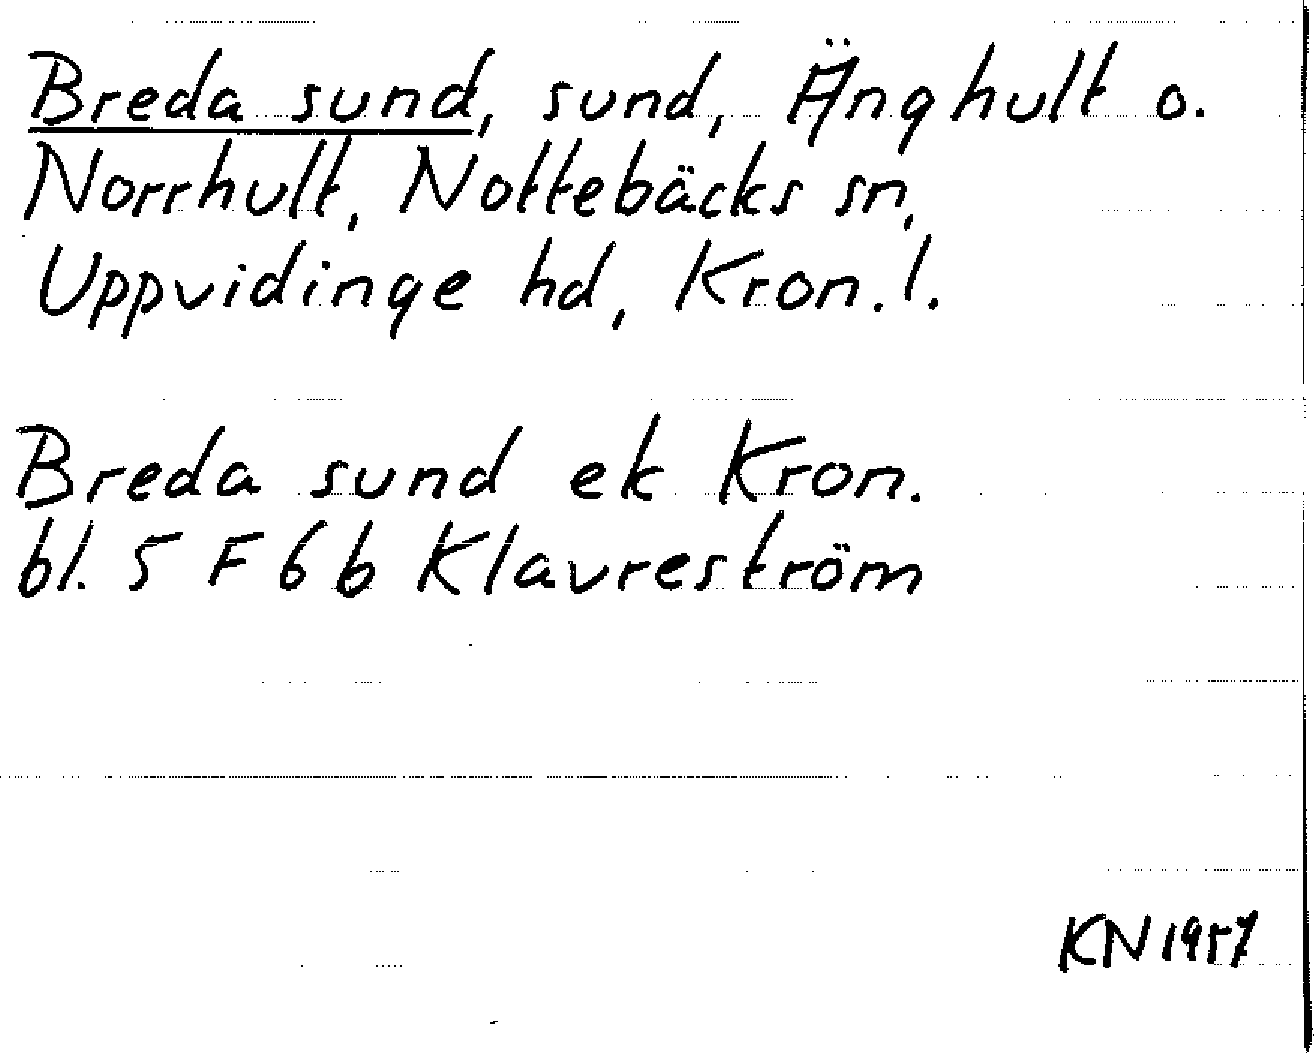 Breda sund, sund, Änghult o.
Norrhult, Nottebäcks sn,
Uppvidinge hd, Kron. l.
Breda sund ek Kron.
bl. 5 F 6 b Klavreström
KN 1957